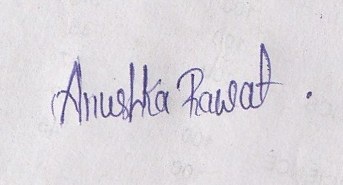 Anushka Rawat .